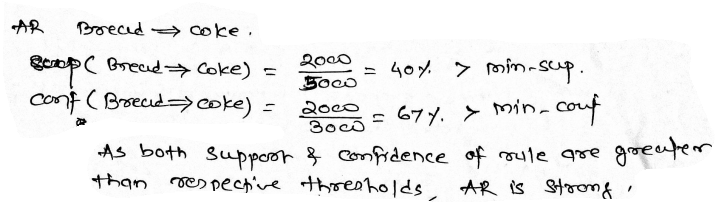 AR Bread ⇒ coke.
Supp( Bread ⇒ Coke) = 2000/5000 = 40% > min-sup.
conf( Bread ⇒ coke) = 2000/3000 = 67% > min-conf
As both support & confidence of rule are greater
than respective thresholds, AR is strong.